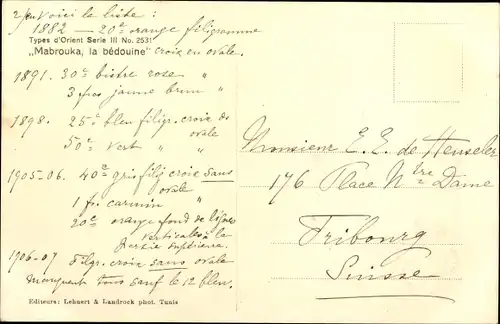 voici la liste :
1882 — 20c orange filigramme
Types d'Orient Serie III No. 2531
„Mabrouka, la bédouine" croix en ovale.
1891. 30c bistre rose "
3 frcs jaune brun "
1898. 25c bleu filigr. croix ds ovale
50c vert " " "
1905-06. 40c gris filig croix sans ovale
1 fr. carmin " "
20c orange fond de lignes
verticales à la
partie supérieure.
1906-07 filgr. croix sans ovale
manquent tous sauf le 12 bleu.
Editeurs: Lehnert & Landrock phot. Tunis
Monsieur E. E. de Henseler
176 Place Ntre Dame
Fribourg
Suisse